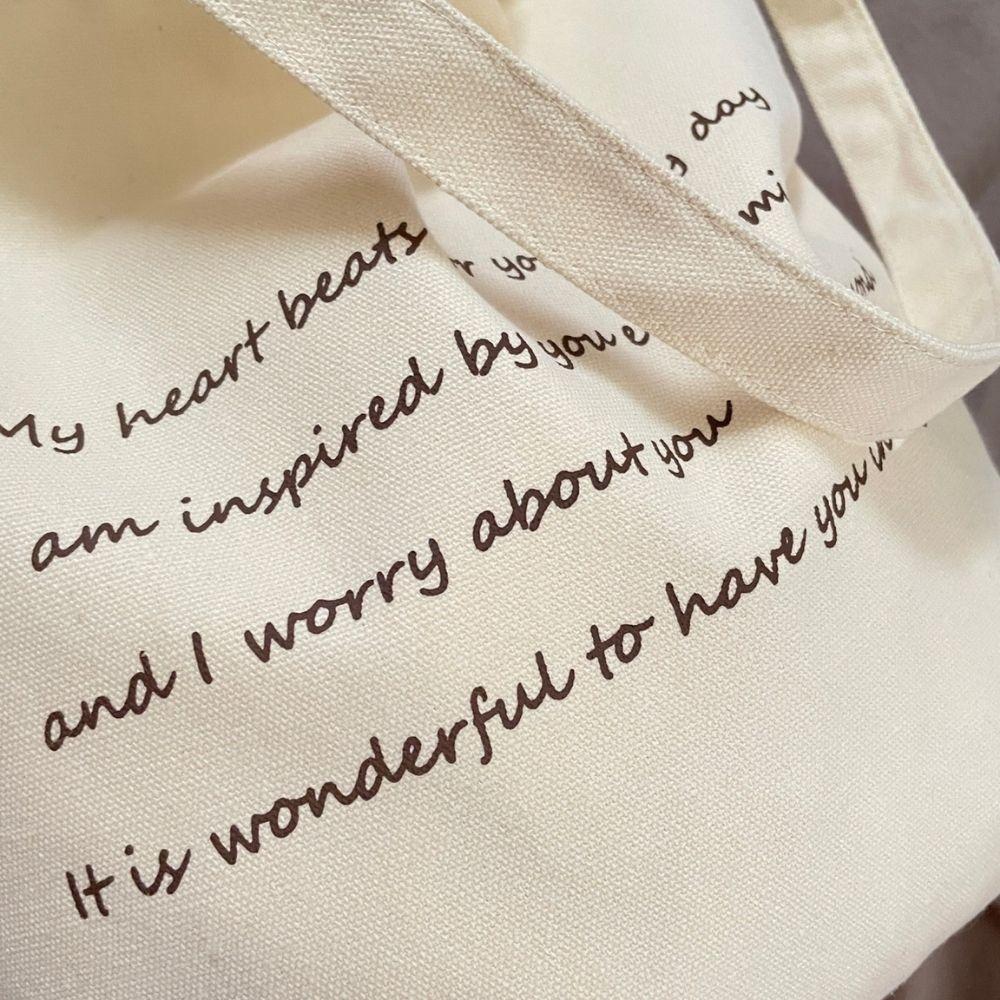 My heart beats day
am inspired by you
and I worry about you
It is wonderful to have you in